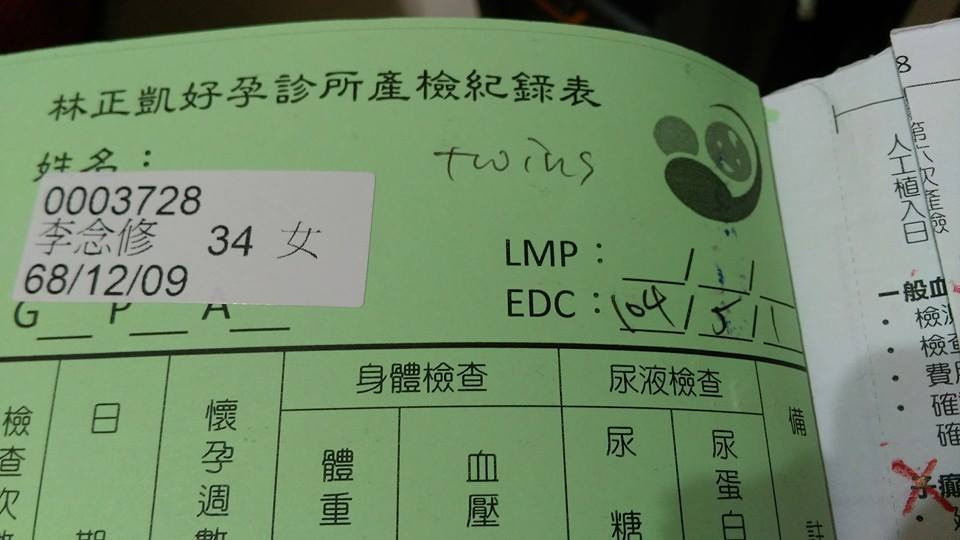 林正凱好孕診所產檢紀錄表
姓名：
twins
0003728
李念修 34 女
68/12/09
LMP： / /
EDC：104/5/1
G P A
檢查次數
日期
懷孕週數
身體檢查
體重
血壓
尿液檢查
尿糖
尿蛋白
備註
8
第六次產檢
人工植入日
一般血
• 檢
• 檢查
• 費
• 確
確
子癲